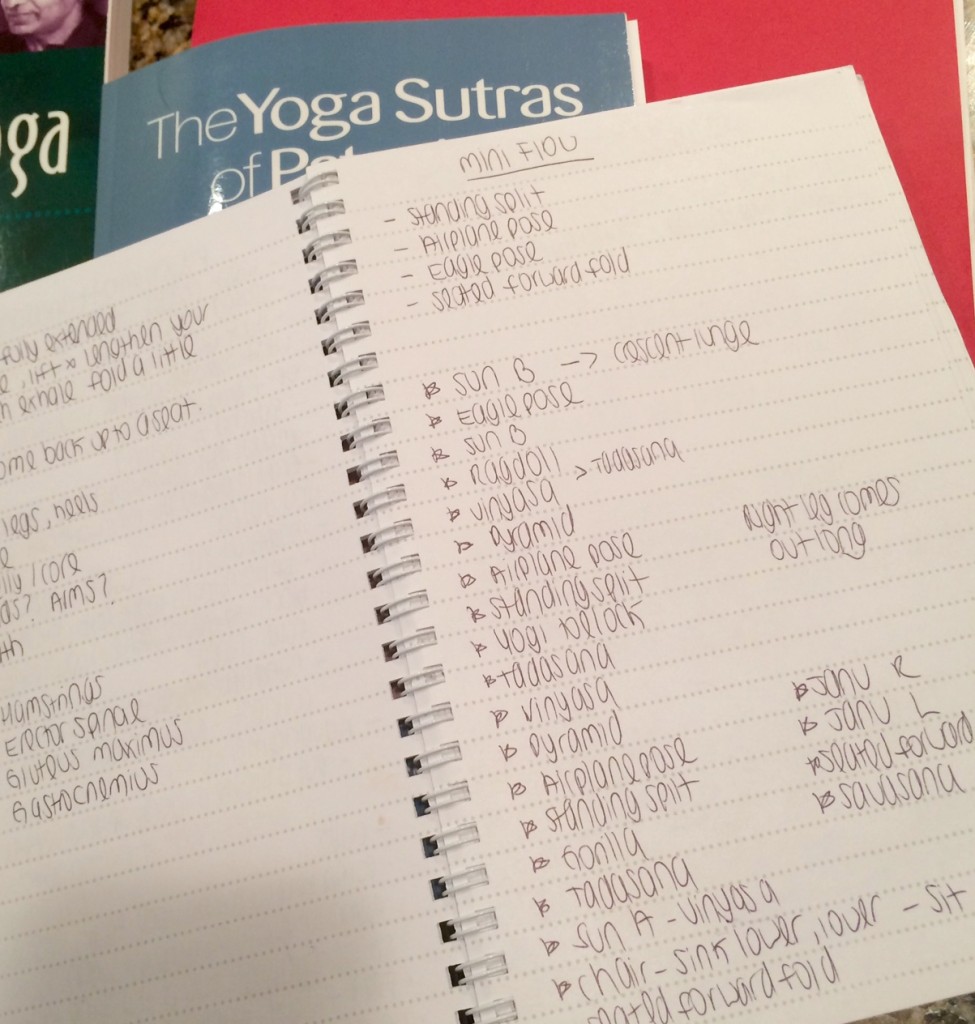 oga
The Yoga Sutras
of
fully extended
, lift & lengthen your
exhale fold a little
come back up to a seat.
legs, heels
/core
? Aims?
Hamstrings
Erector spinae
Gluteus maximus
Gastrocnemius
Mini Flow
- standing split
- Airplane pose
- Eagle pose
- seated forward fold
Sun B -> crescent lunge
Eagle pose
Sun B
Ragdoll > Tadasana
vinyasa
pyramid
Airplane pose
standing split
yogi toe lock
tadasana
vinyasa
pyramid
Airplane pose
standing split
Gorilla
Tadasana
Sun A - vinyasa
chair - sink lower, lower - sit
seated forward fold
Right leg comes
out long
Janu R
Janu L
seated forward
savasana